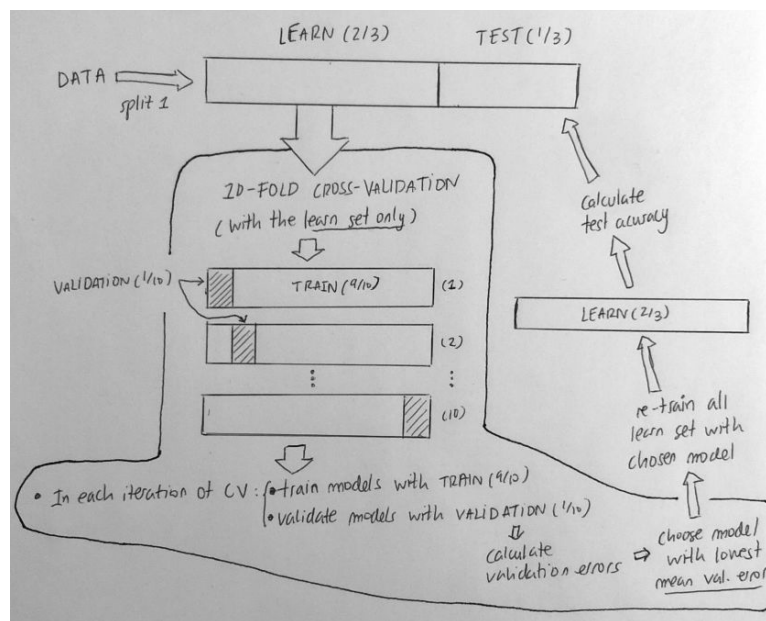 LEARN (2/3)
TEST (1/3)
DATA
split 1
10-FOLD CROSS-VALIDATION
(with the learn set only)
VALIDATION (1/10)
TRAIN (9/10)
(1)
(2)
(10)
• In each iteration of CV: • train models with TRAIN (9/10)
• validate models with VALIDATION (1/10)
calculate
validation errors
choose model
with lowest
mean val. error
re-train all
learn set with
chosen model
LEARN (2/3)
calculate
test accuracy